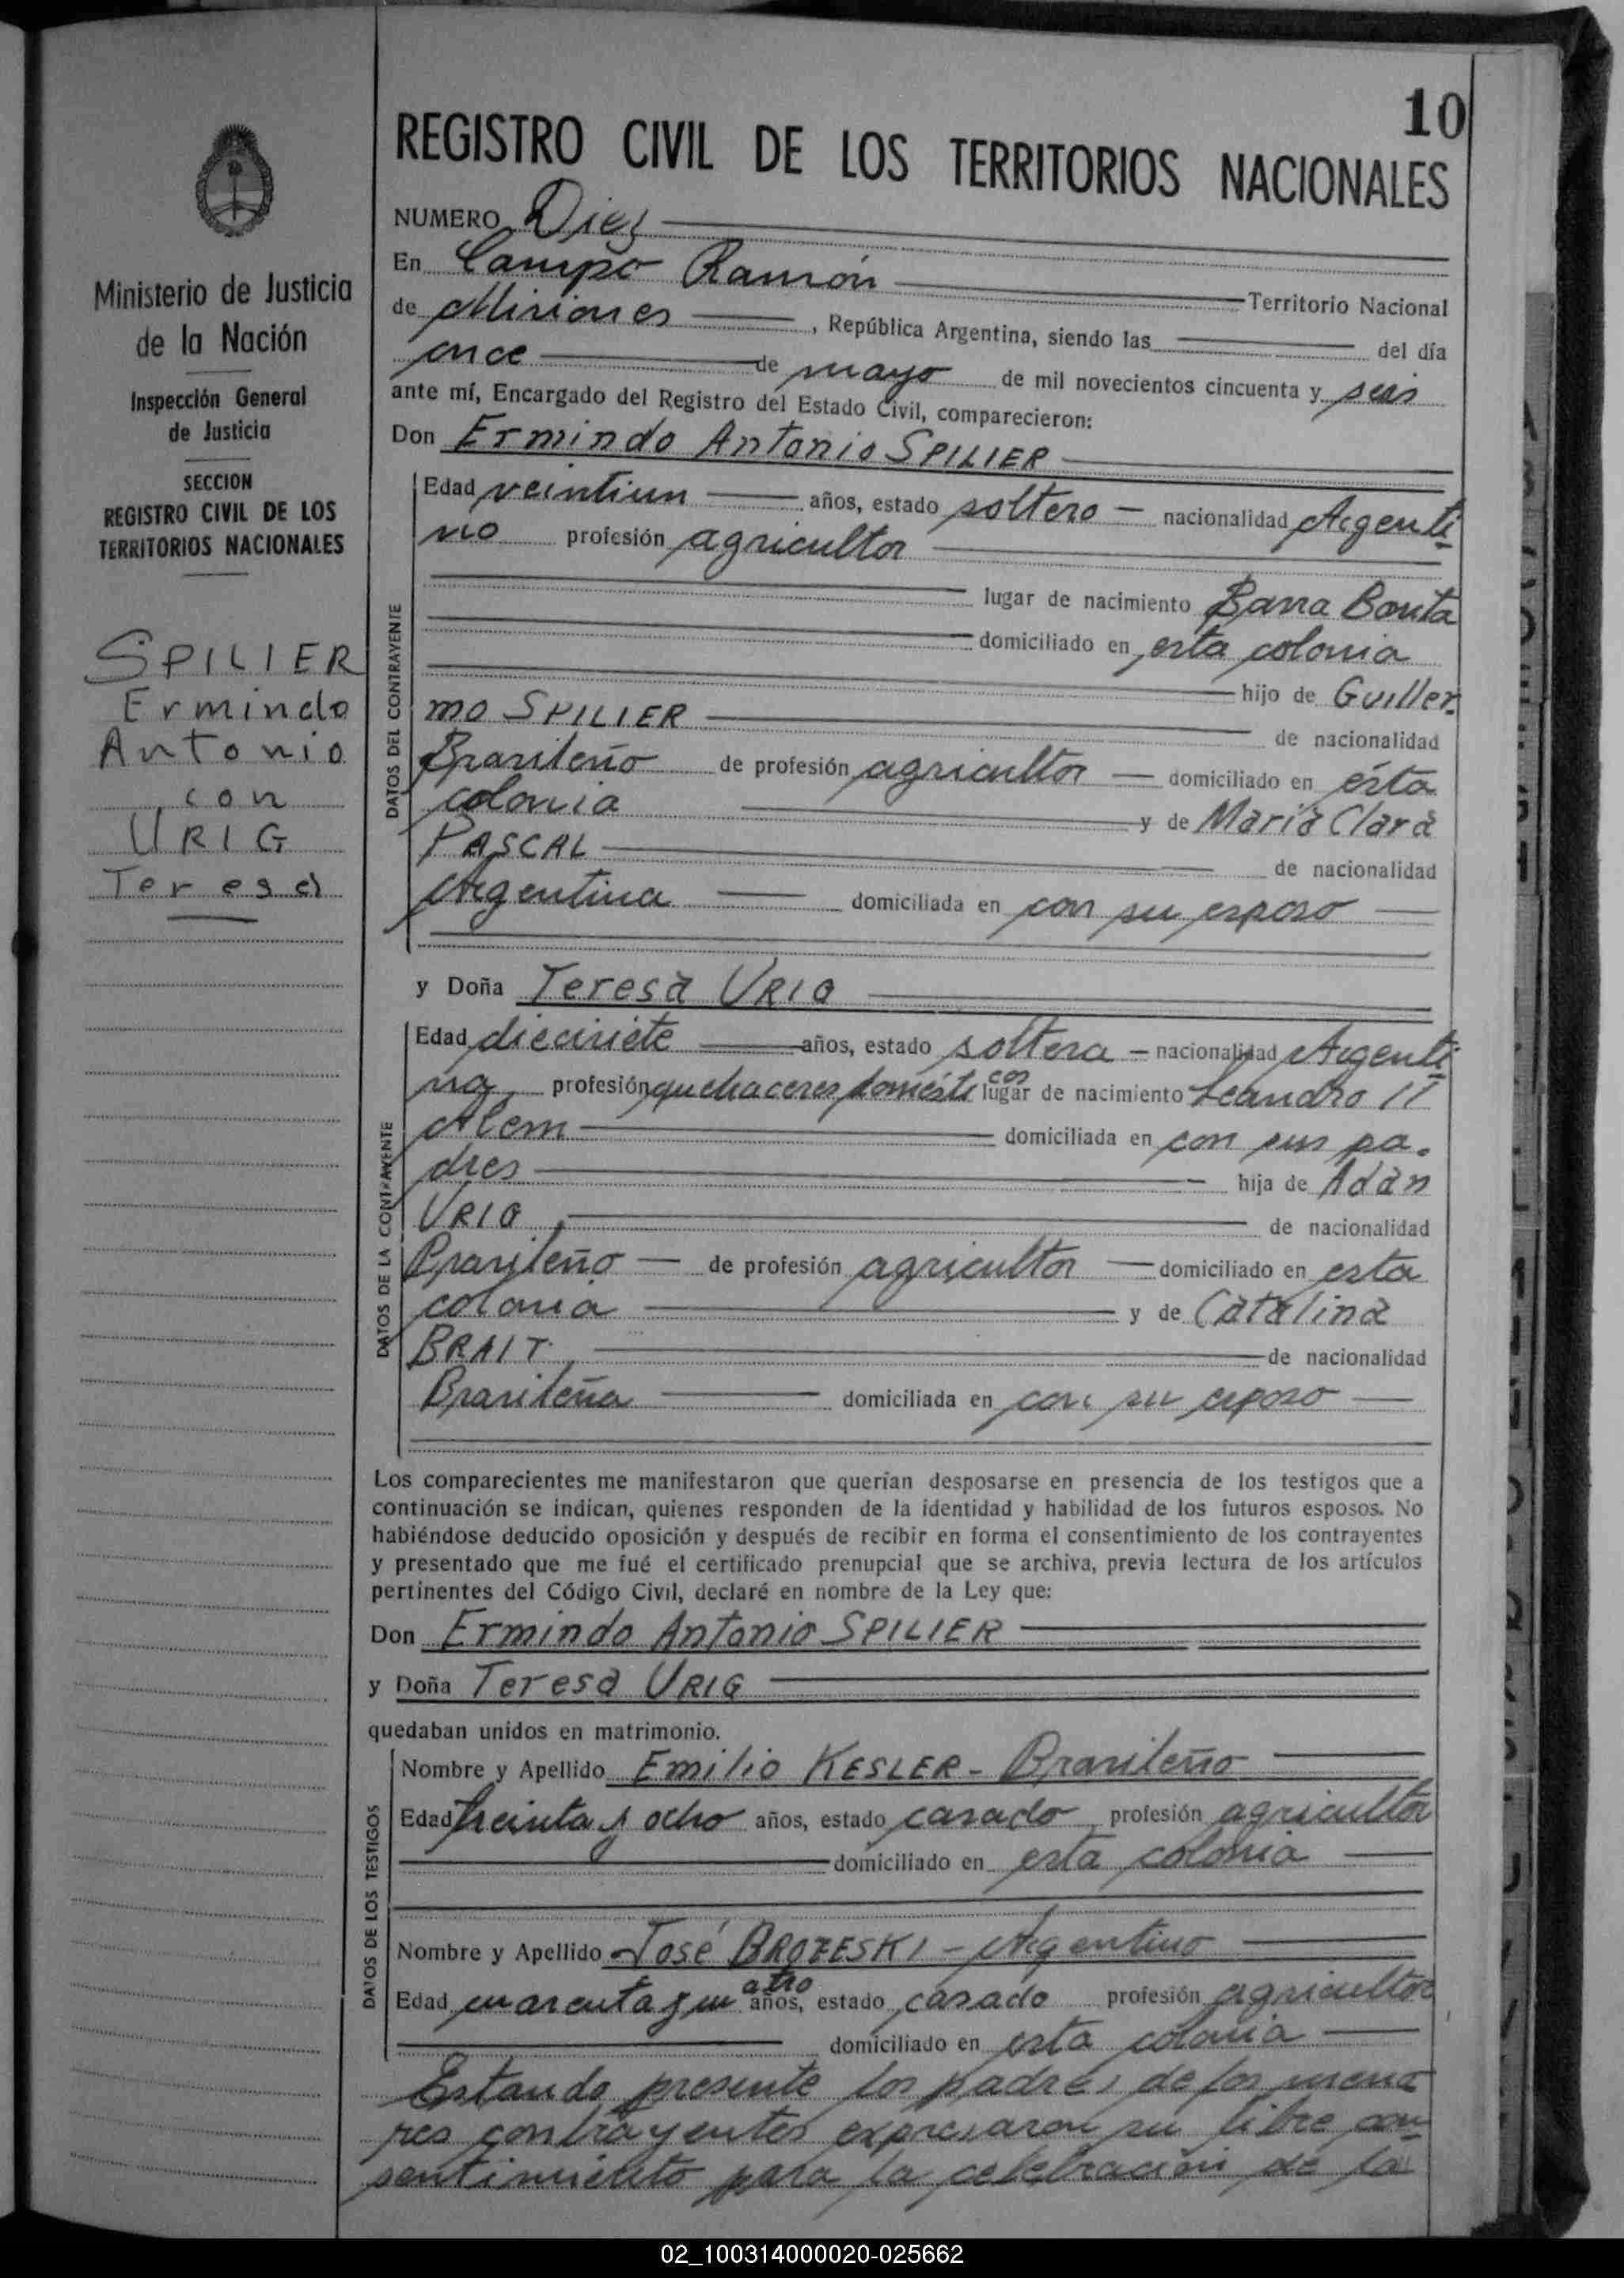 10
REGISTRO CIVIL DE LOS TERRITORIOS NACIONALES
Ministerio de Justicia
de la Nación
Inspección General
de Justicia
SECCION
REGISTRO CIVIL DE LOS
TERRITORIOS NACIONALES
SPILIER
Ermindo
Antonio
con
URIG
Teresa
NUMERO Diez
En Campo Ramón Territorio Nacional
de Misiones , República Argentina, siendo las del día
once de mayo de mil novecientos cincuenta y seis
ante mí, Encargado del Registro del Estado Civil, comparecieron:
Don Ermindo Antonio SPILIER
DATOS DEL CONTRAYENTE
Edad veintiun años, estado soltero – nacionalidad Argenti
no profesión agricultor
lugar de nacimiento Barra Bonita
domiciliado en esta colonia
hijo de Guiller
mo SPILIER
de nacionalidad
Brasileño de profesión agricultor – domiciliado en ésta
colonia y de Maria Clara
PASCAL
de nacionalidad
Argentina domiciliada en con su esposo
y Doña Teresa URIG
DATOS DE LA CONTRAYENTE
Edad diecisiete años, estado soltera – nacionalidad Argenti
na profesión quehaceres domésticos lugar de nacimiento Leandro N
Alem domiciliada en con sus pa
dres hija de Adan
URIG de nacionalidad
Brasileño – de profesión agricultor – domiciliado en esta
colonia y de Catalina
BRAIT de nacionalidad
Brasileña domiciliada en con su esposo
Los comparecientes me manifestaron que querían desposarse en presencia de los testigos que a
continuación se indican, quienes responden de la identidad y habilidad de los futuros esposos. No
habiéndose deducido oposición y después de recibir en forma el consentimiento de los contrayentes
y presentado que me fué el certificado prenupcial que se archiva, previa lectura de los artículos
pertinentes del Código Civil, declaré en nombre de la Ley que:
Don Ermindo Antonio SPILIER
y Doña Teresa URIG
quedaban unidos en matrimonio.
DATOS DE LOS TESTIGOS
Nombre y Apellido Emilio KESLER – Brasileño
Edad treinta y ocho años, estado casado profesión agricultor
domiciliado en esta colonia
Nombre y Apellido José BROZESKI – Argentino
Edad cuarenta y cuatro años, estado casado profesión agricultor
domiciliado en esta colonia
Estando presente los padres de los meno
res contrayentes expresaron su libre con-
sentimiento para la celebración de la
02_100314000020-025662